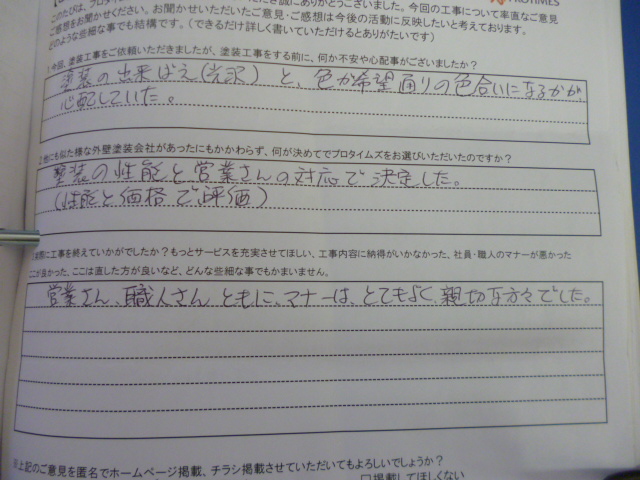 このたびは、プロタイムズ
誠にありがとうございました。今回の工事について率直なご意見
ご感想をお聞かせください。お聞かせいただいたご意見・ご感想は今後の活動に反映したいと考えております。
どのような些細な事でも結構です。(できるだけ詳しく書いていただけるとありがたいです)
PROTIMES
1.今回、塗装工事をご依頼いただきましたが、塗装工事をする前に、何か不安や心配事がございましたか?
塗装の出来ばえ(光沢)と、色が希望通りの色合いになるかが、
心配していた。
2.他にも似た様な外壁塗装会社があったにもかかわらず、何が決めてでプロタイムズをお選びいただいたのですか?
塗装の性能と営業さんの対応で決定した。
(性能と価格で、評価)
実際に工事を終えていかがでしたか?もっとサービスを充実させてほしい、工事内容に納得がいかなかった、社員・職人のマナーが悪かった
ここが良かった、ここは直した方が良いなど、どんな些細な事でもかまいません。
営業さん、職人さんともに、マナーは、とてもよく、親切な方々でした。
※上記のご意見を匿名でホームページ掲載、チラシ掲載させていただいてもよろしいでしょうか?
□掲載してほしくない